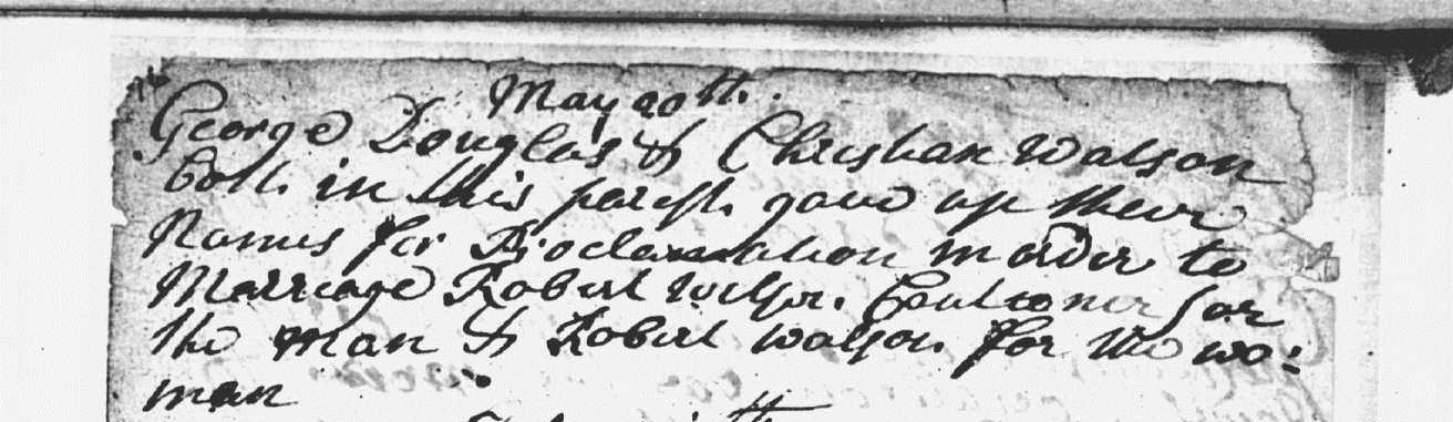 May 20th.
George Douglas & Christian Watson
both in this parish gave up their
Names for Proclamation in order to
Marriage Robert Wilson Cautioner for
the man & Robert Watson for the wo:
man